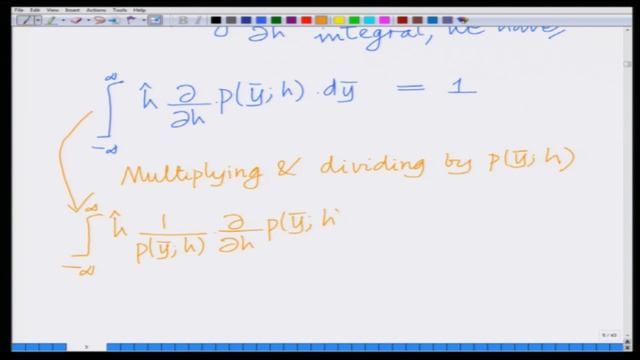 File Edit View Insert Actions Tools Help
∂h integral, we have,
∫_{-∞}^{∞} ĥ ∂/∂h p(ȳ; h) · dȳ = 1
Multiplying & dividing by p(ȳ; h)
∫_{-∞}^{∞} ĥ 1/p(ȳ; h) ∂/∂h p(ȳ; h